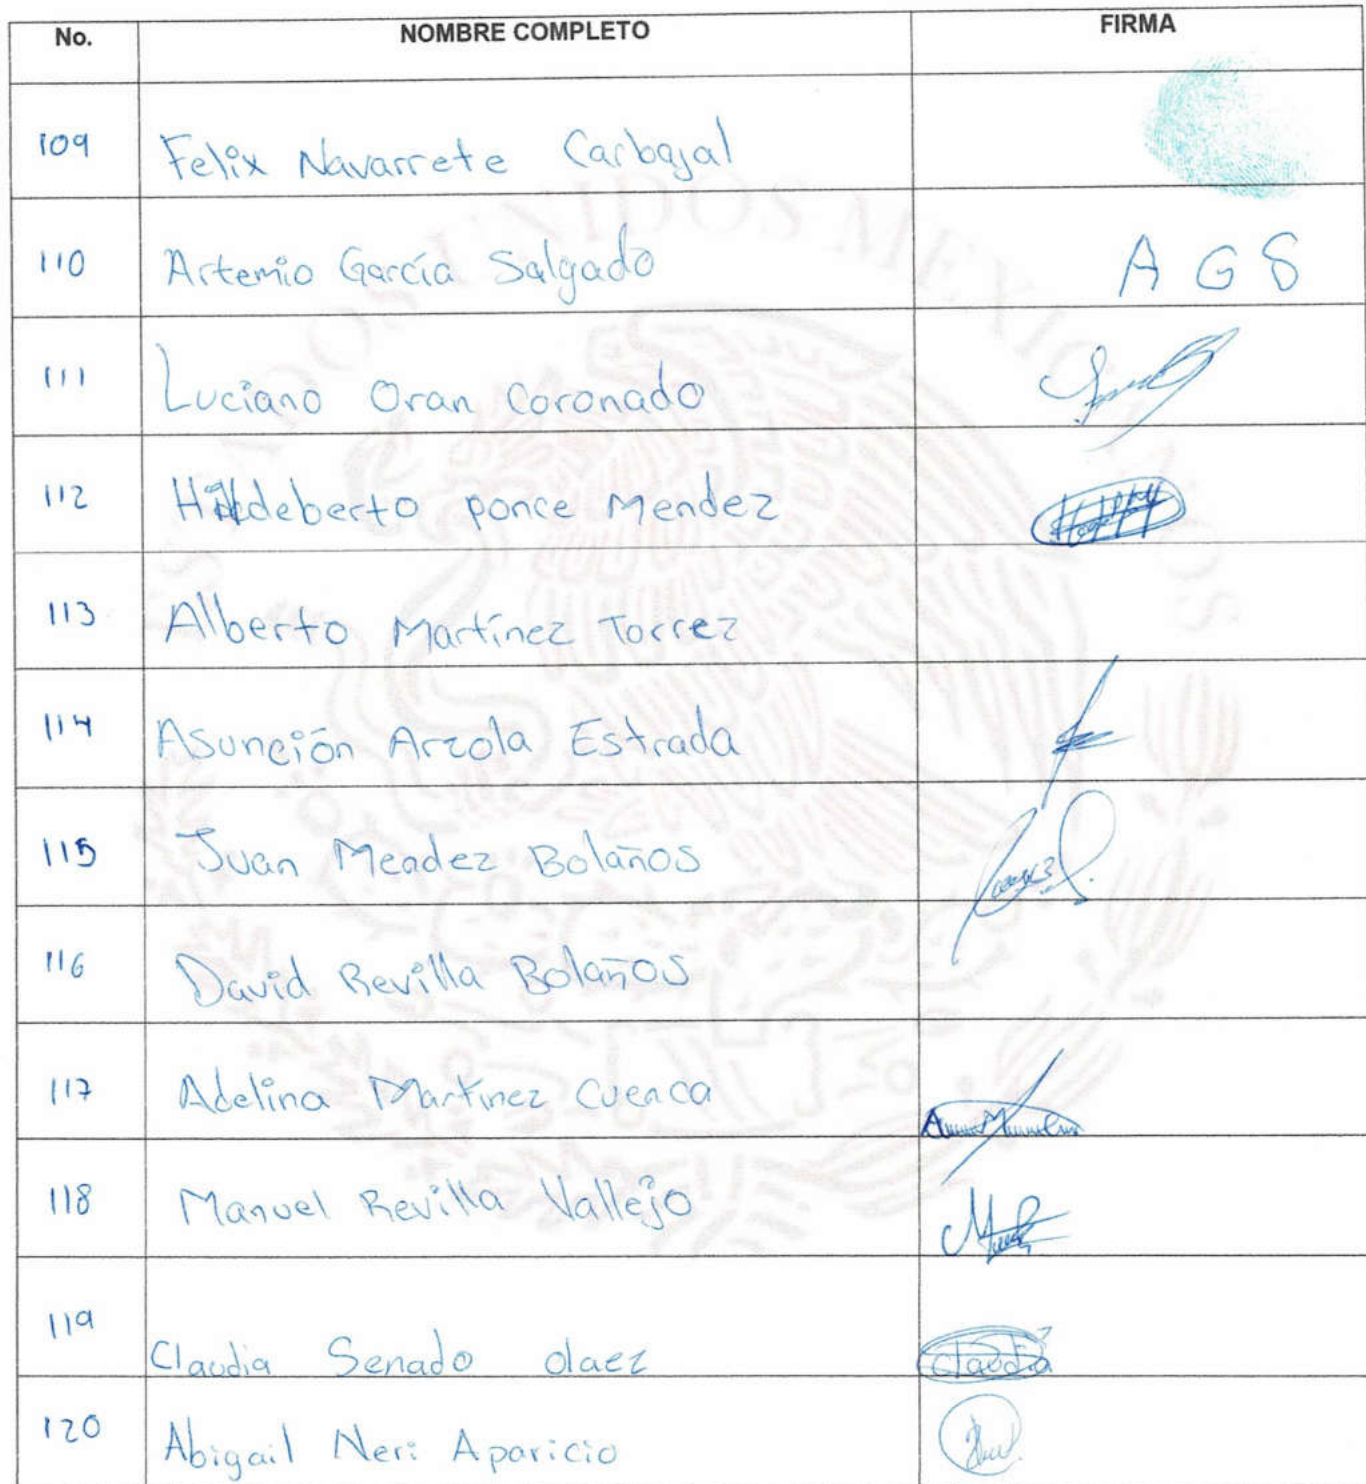 No. NOMBRE COMPLETO FIRMA
109 Felix Navarrete Carbajal
110 Artemio García Salgado A G S
111 Luciano Oran Coronado
112 Hildeberto ponce Mendez
113 Alberto Martínez Torrez
114 Asunción Arzola Estrada
115 Juan Mendez Bolaños
116 David Revilla Bolaños
117 Adelina Martinez Cuenca
118 Manuel Revilla Vallejo
119 Claudia Senado olaez Claudia
120 Abigail Neri Aparicio
ESTADOS UNIDOS MEXICANOS